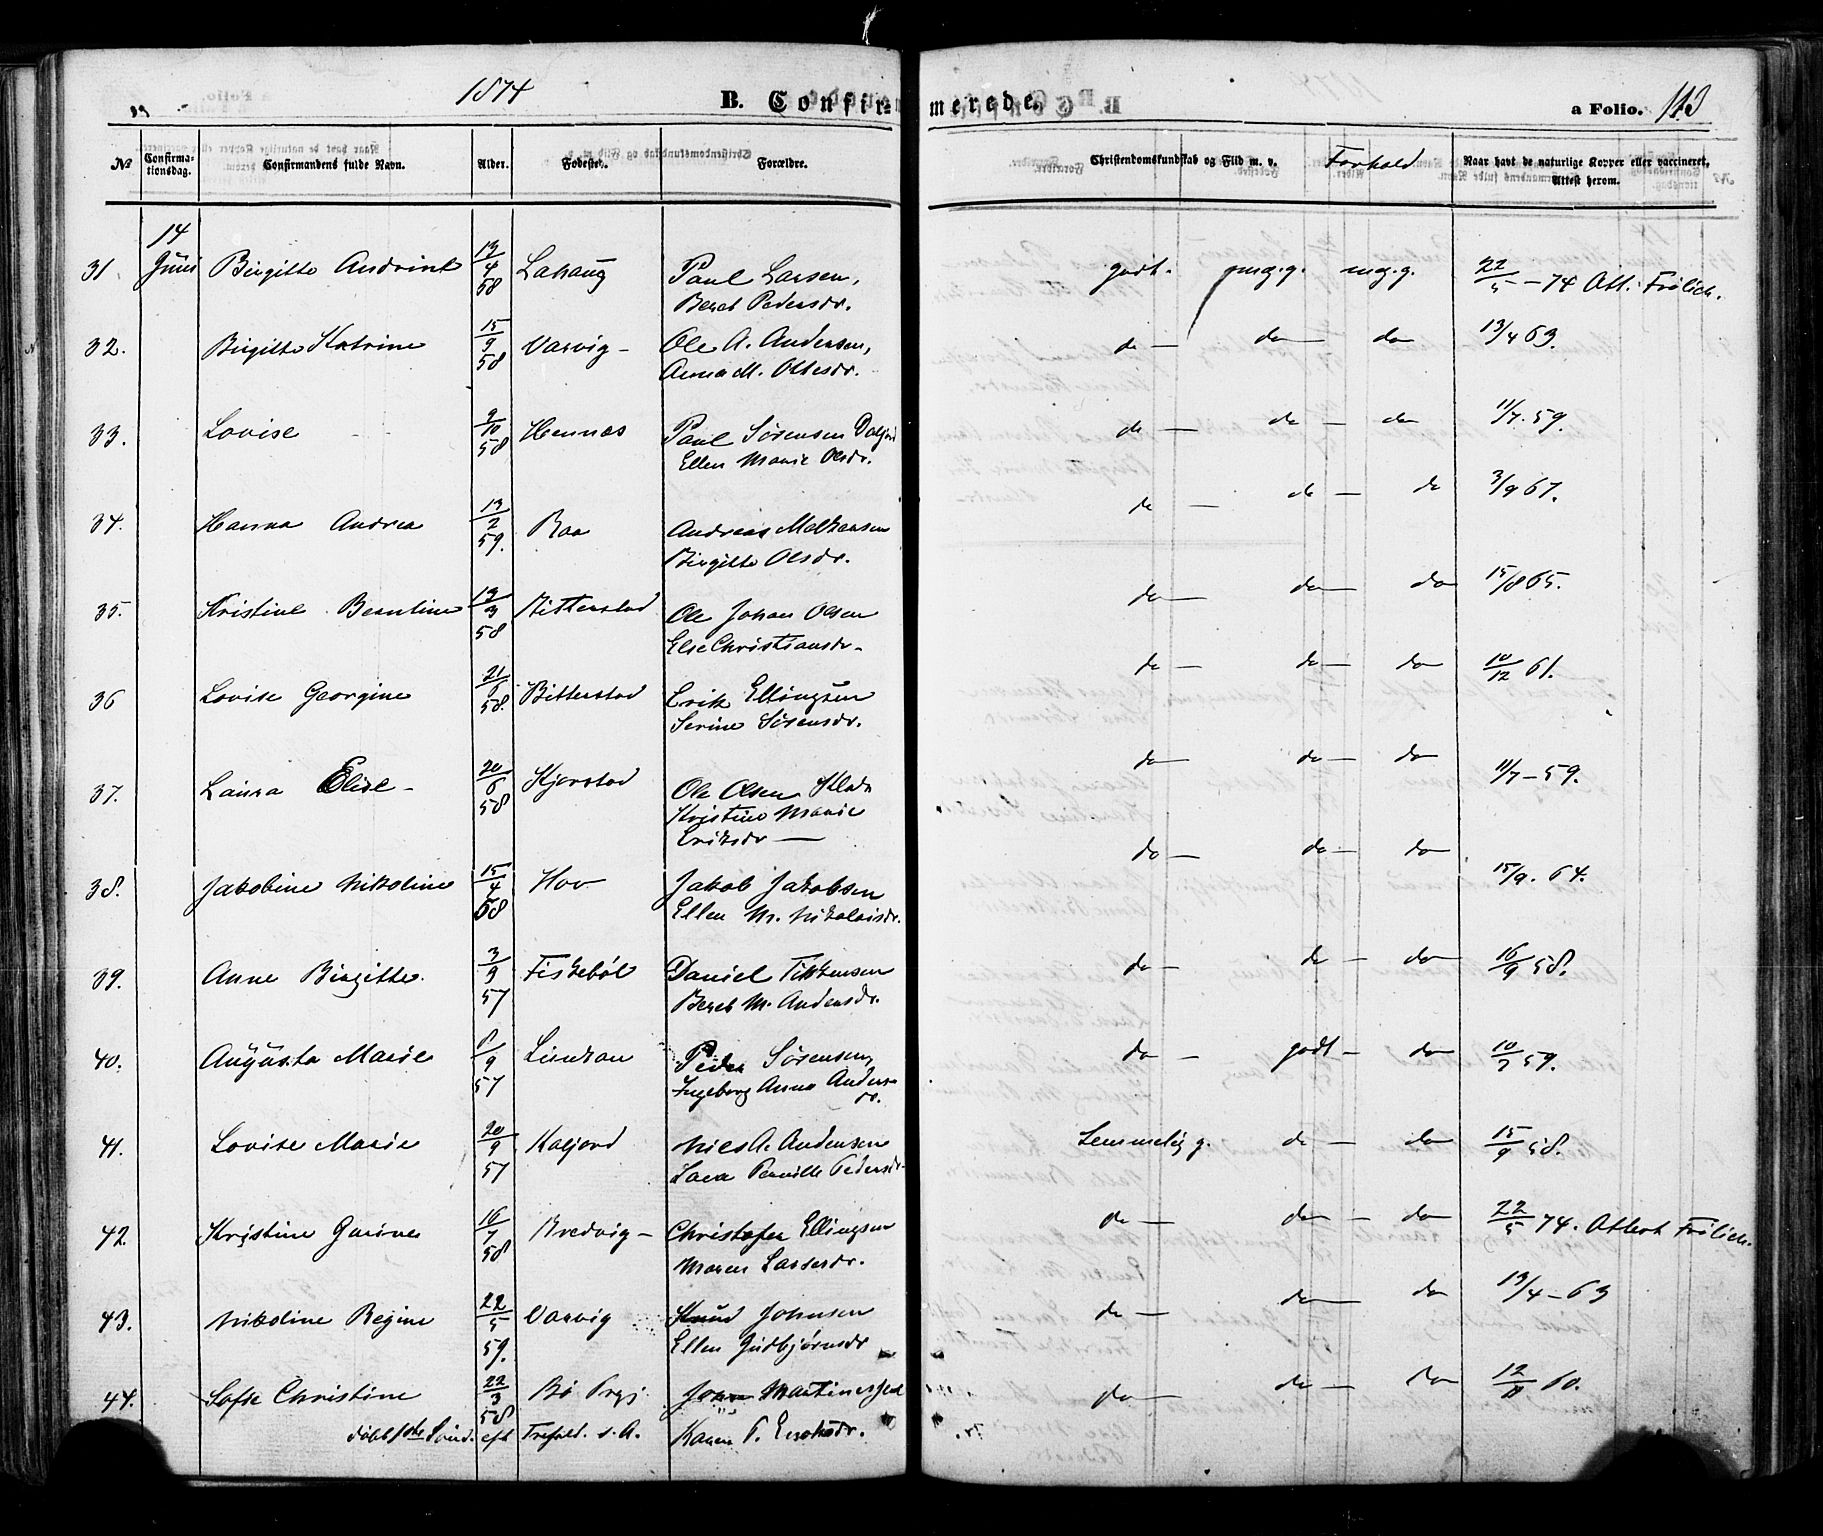 1874 B. Confirmerede. a Folio. 113
No Confirmationsdag. Confirmandens fulde Navn. Alder. Fødested. Forældre. Christendomskundskab og Flid m. v. Forhold Naar havt de naturlige Kopper eller vaccineret, Attest herom.
31. 14 Juni Birgitte Andrine 13/4 58 Lahaug Paul Larsen, godt. mg.g. mg.g. 22/5 - 74 Att. Frölich.
Beret Pedersdr.
32. Birgitte Katrine 15/9 58 Varvig - Ole A. Andersen, do - do do 13/4 63.
Anna M. Ottesdr.
33. Lovise 9/10 58 Hennes Paul Sørensen do - do - do 11/7. 59.
Ellen Marie Olsdr.
34. Hanna Andrea 13/2 59. Roa Andreas do - do - do 3/9 67.
Birgitte Olsdr.
35. Kristine Berntine 13/3 58 Bitterstad Ole Johan Olsen do do do 15/8 65.
Else Christiansdr.
36 Lovise Georgine 58. Bitterstad Erik Ellingsen do - do - do 10/12 61.
Serine Sørensdr.
37. Laura Elise - 20/6 58 Kjørstad Ole Olsen do - do - do 11/7 - 59.
Kristine Marie
Eriksdr -
38. Jakobine Nikoline 15/4 58 Hov Jakob Jakobsen do - do - do 15/9. 64.
Ellen M. Nikolaisdr.
39. Anne Birgitte. 3/9 57 Fiskebøl Daniel do - do - do 16/9 58.
Beret M. Andersdr.
40. Augusta Marie 9 57 Peder Sørensen, do - godt - do 59.
Ingeborg Anna Anders
dr.
41. Lovise Marie 20/9 57 Kaljord Niels A. Andersen Temmelig g. do - do 15/9 58.
Lava Pernille Pedersdr.
42. Kristine Gurine 16/7 58 Bredvig - Christofer Ellingsen do - do - do 22/5 74. Attest Frölich.
Maren Larsdr.
43. Nikoline Regine 22/5 59. Varvig Knud Johnsen do - do do 13/4 - 63
Ellen Gudbjørnsdr
44. Sofie Christine 22/3 58 Bö Prgj. Martines do - do - do 60.
Karen P.